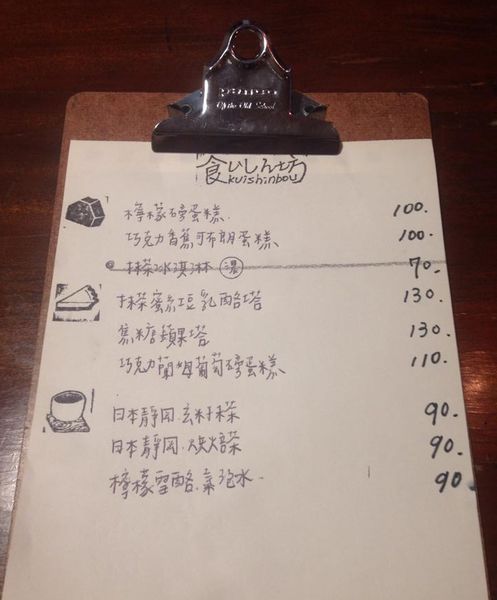 Of the Old School
食いしん坊
kuishinbou
檸檬磅蛋糕. 100.
巧克力香蕉可布朗蛋糕. 100.
抹茶冰淇淋 濃 70.
抹茶蜜紅豆乳酪塔 130.
焦糖蘋果塔 130.
巧克力蘭姆葡萄磅蛋糕. 110.
日本靜岡.玄米抹茶 90.
日本靜岡.炒焙茶 90.
檸檬雪酪.氣泡水 90.